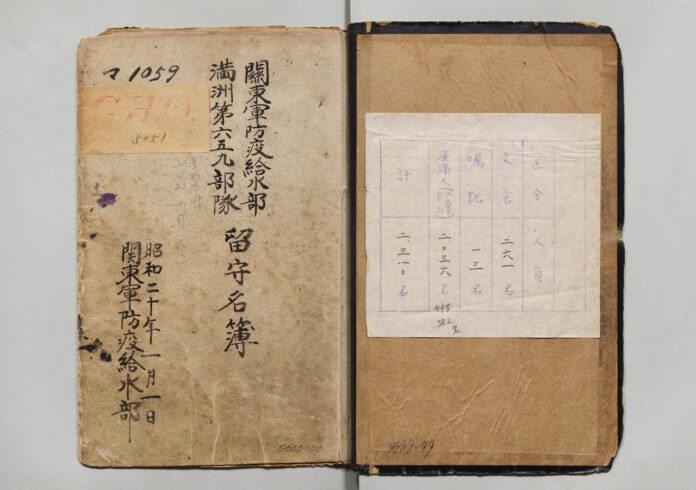 マ1059
5051
關東軍防疫給水部
満洲第六五九部隊
留守名簿
昭和二十年一月一日
関東軍防疫給水部
区分 人員
文官 二六一名
嘱託 一三名
二.〇三六名
382名
計 二.三一〇名